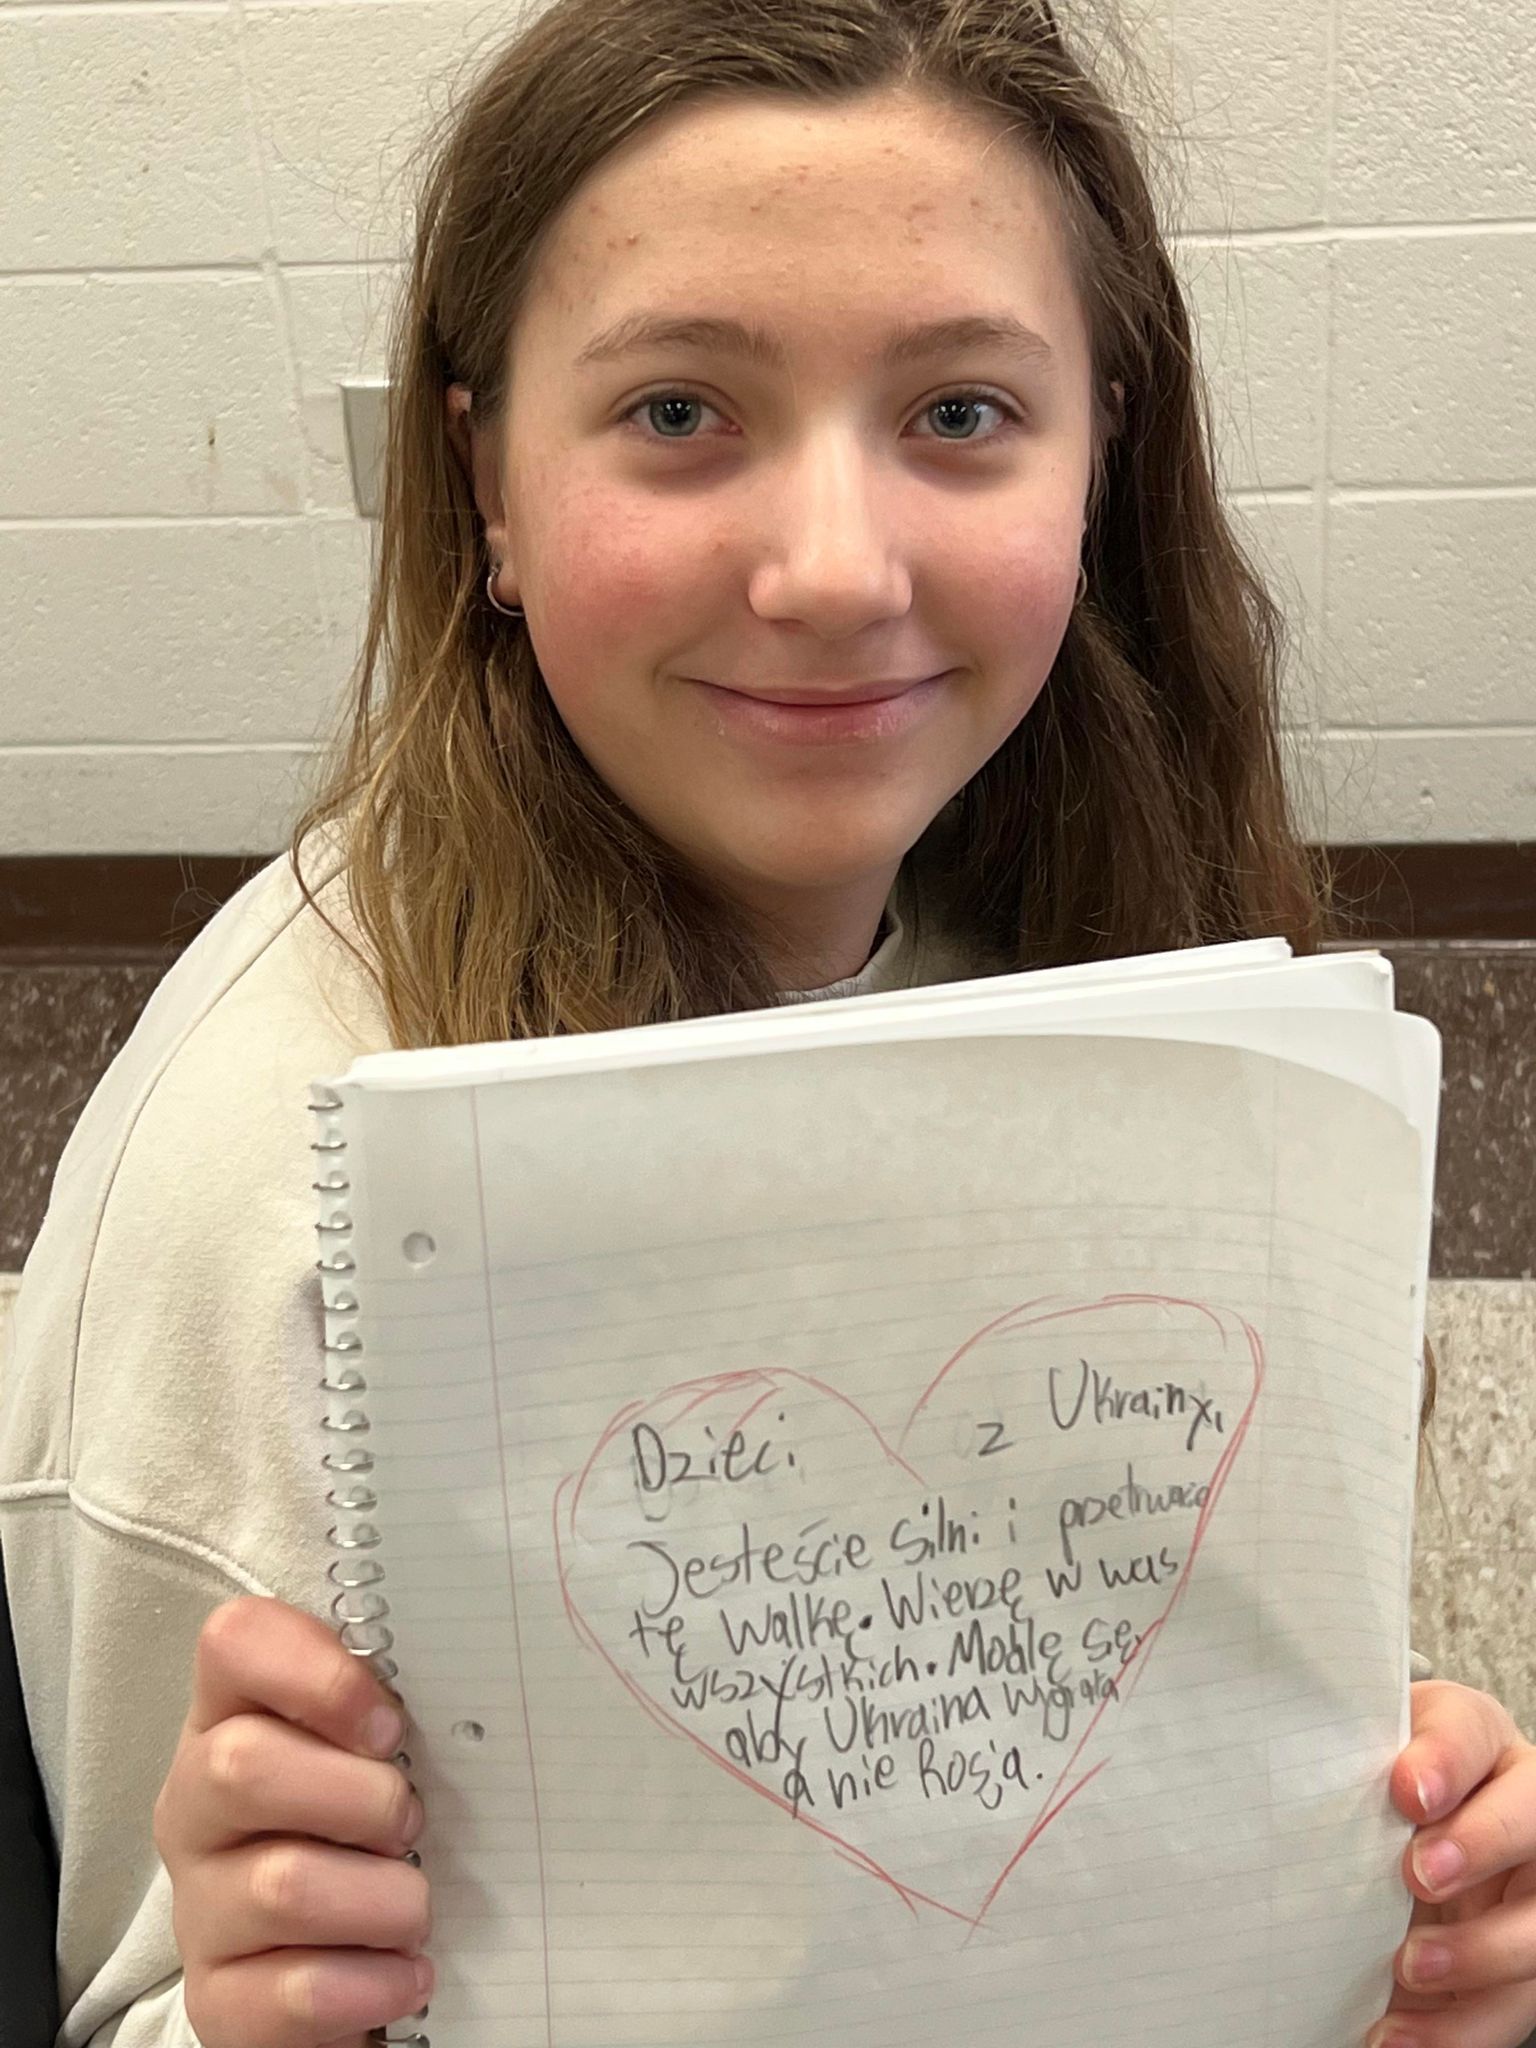 Dzieci z Ukrainy,
Jesteście silni i przetrwacie
tę walkę. Wierzę w was
wszystkich. Modlę się,
aby Ukraina wygrała
a nie Rosja.